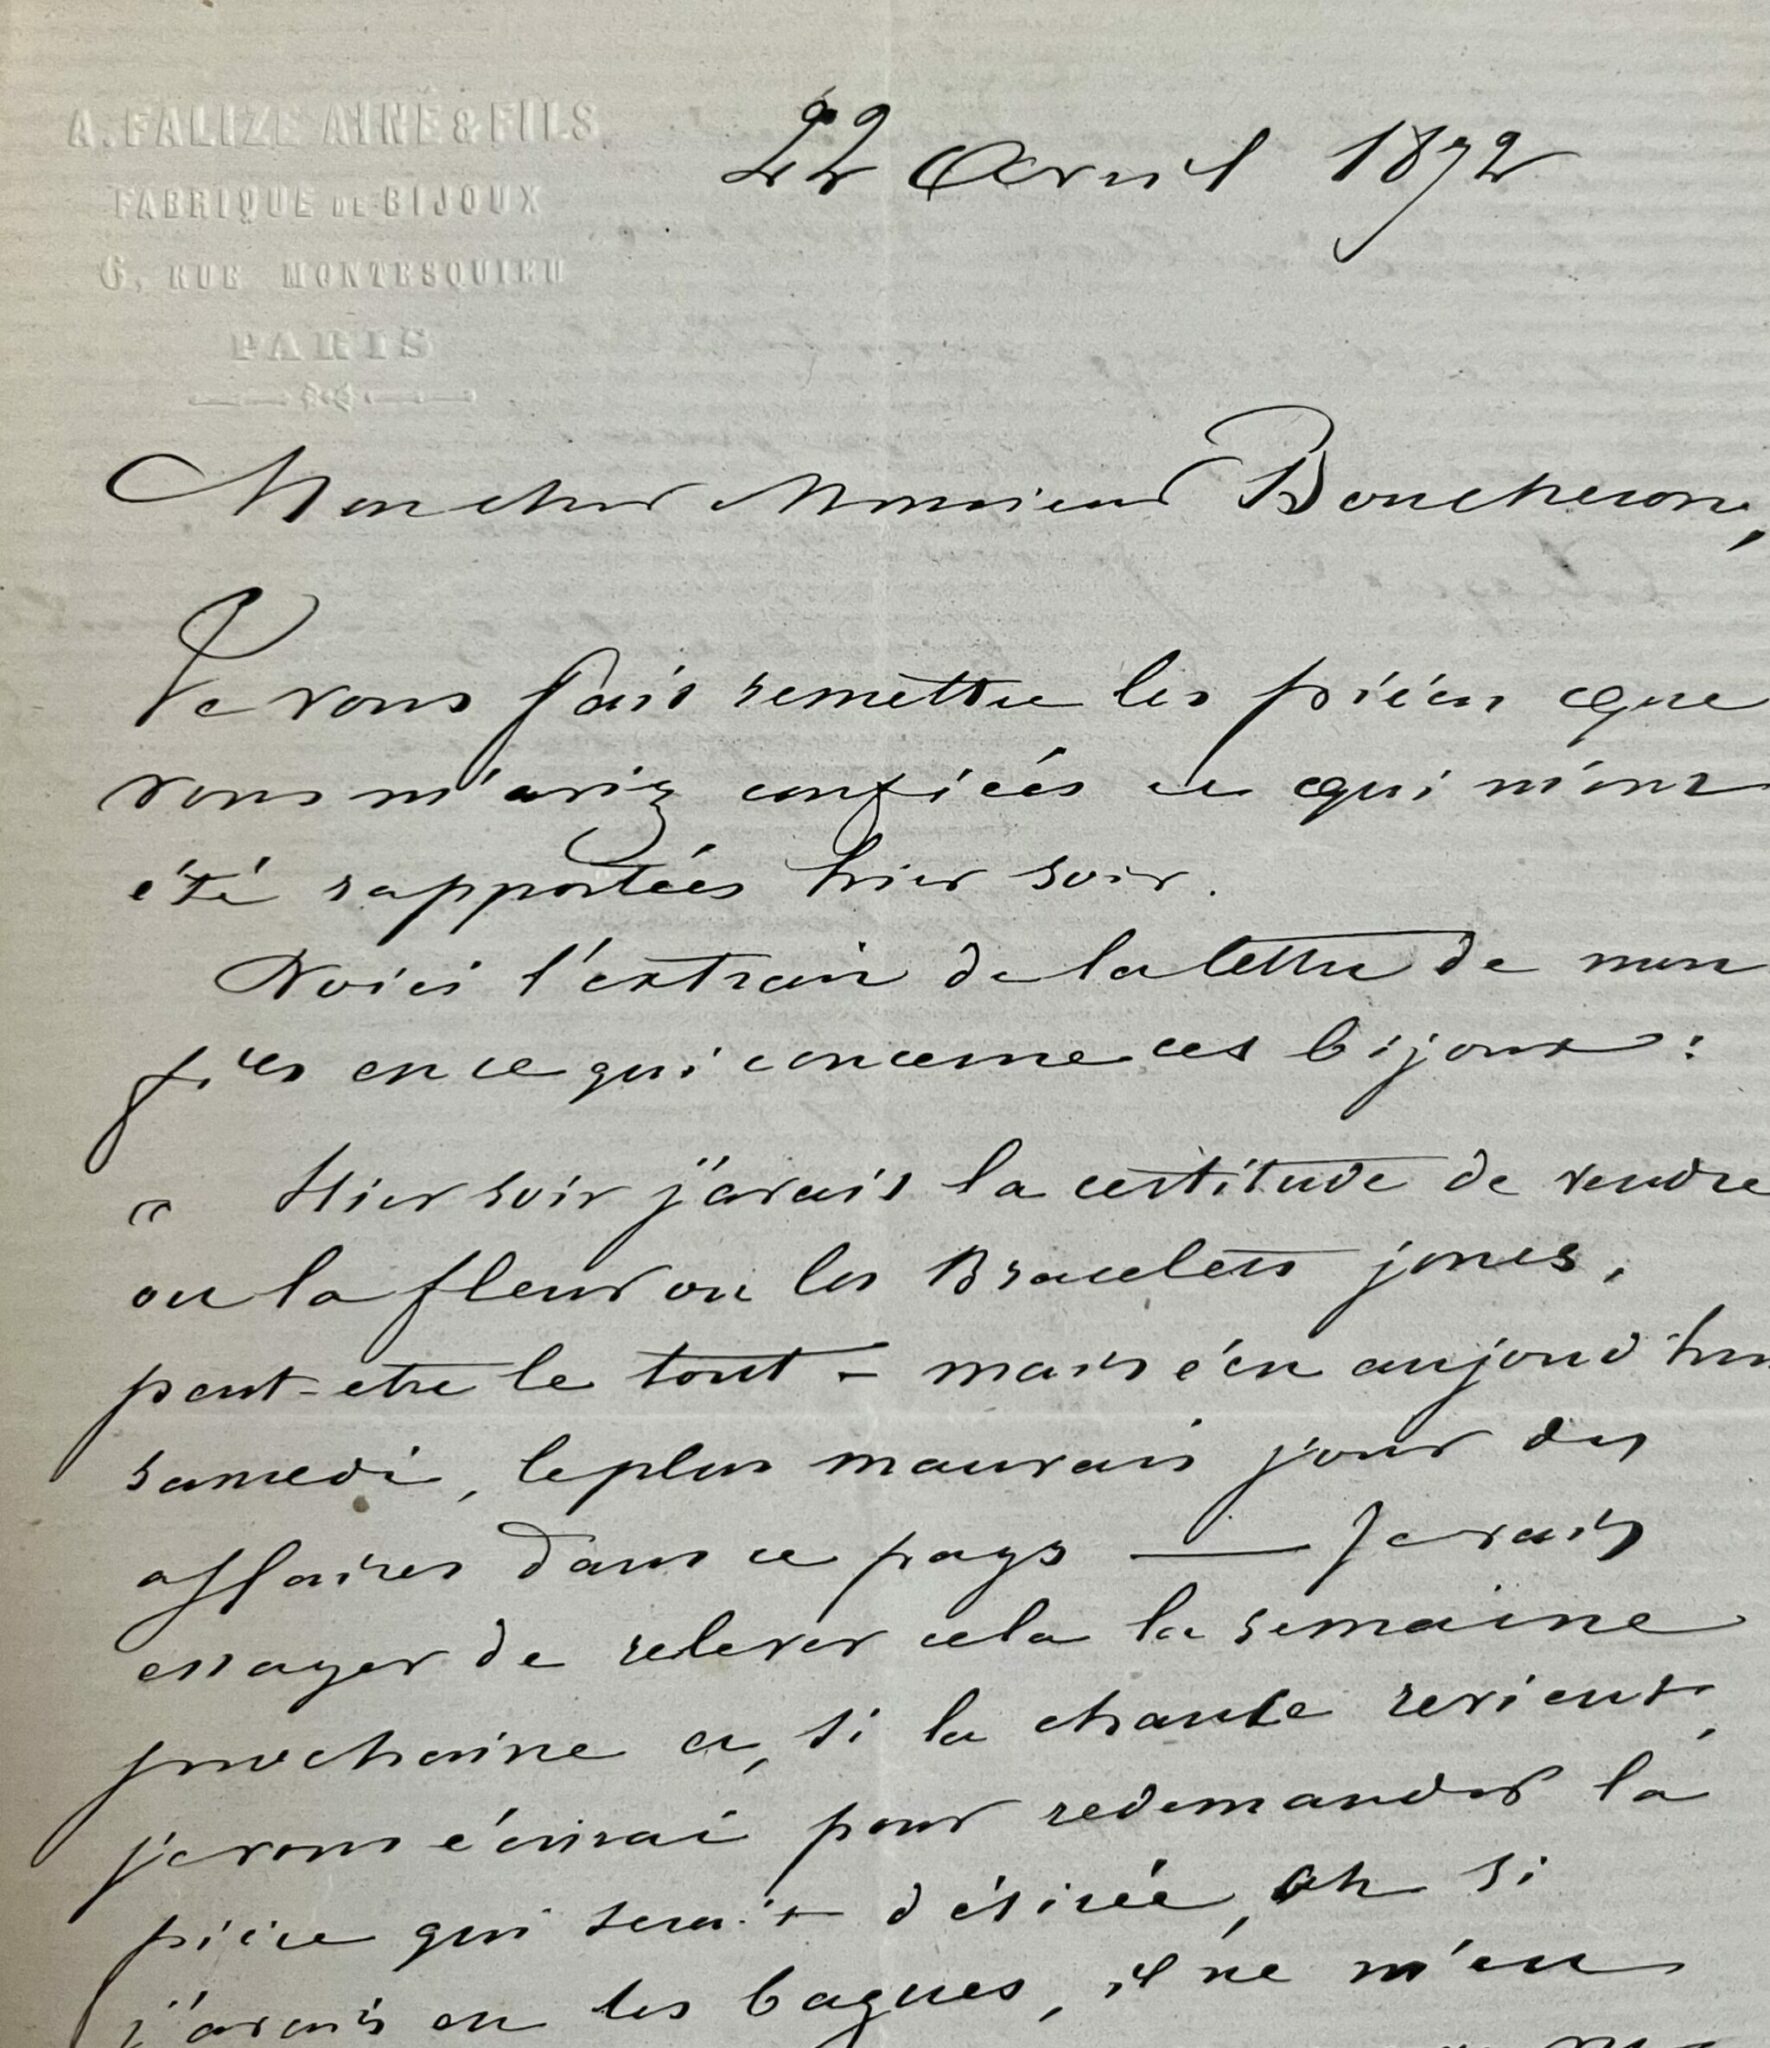 A. FALIZE AINÉ & FILS
FABRIQUE DE BIJOUX
6, RUE MONTESQUIEU
PARIS
22 Avril 1872
Mon cher Monsieur Boucheron,
Je vous fais remettre les pièces que
vous m'aviez confiées et qui m'ont
été rapportées hier soir.
Voici l'extrait de la lettre de mon
fils en ce qui concerne ces bijoux :
" Hier soir j'avais la certitude de vendre
ou la fleur ou les Bracelets joncs,
peut-etre le tout - mais c'est aujourd'hui
samedi, le plus mauvais jour des
affaires dans ce pays — Je vais
essayer de relever cela la semaine
prochaine et, si la chance revient,
je vous écrirai pour redemander la
pièce qui serait désirée, ah si
j'avais eu les bagues, il ne m'en